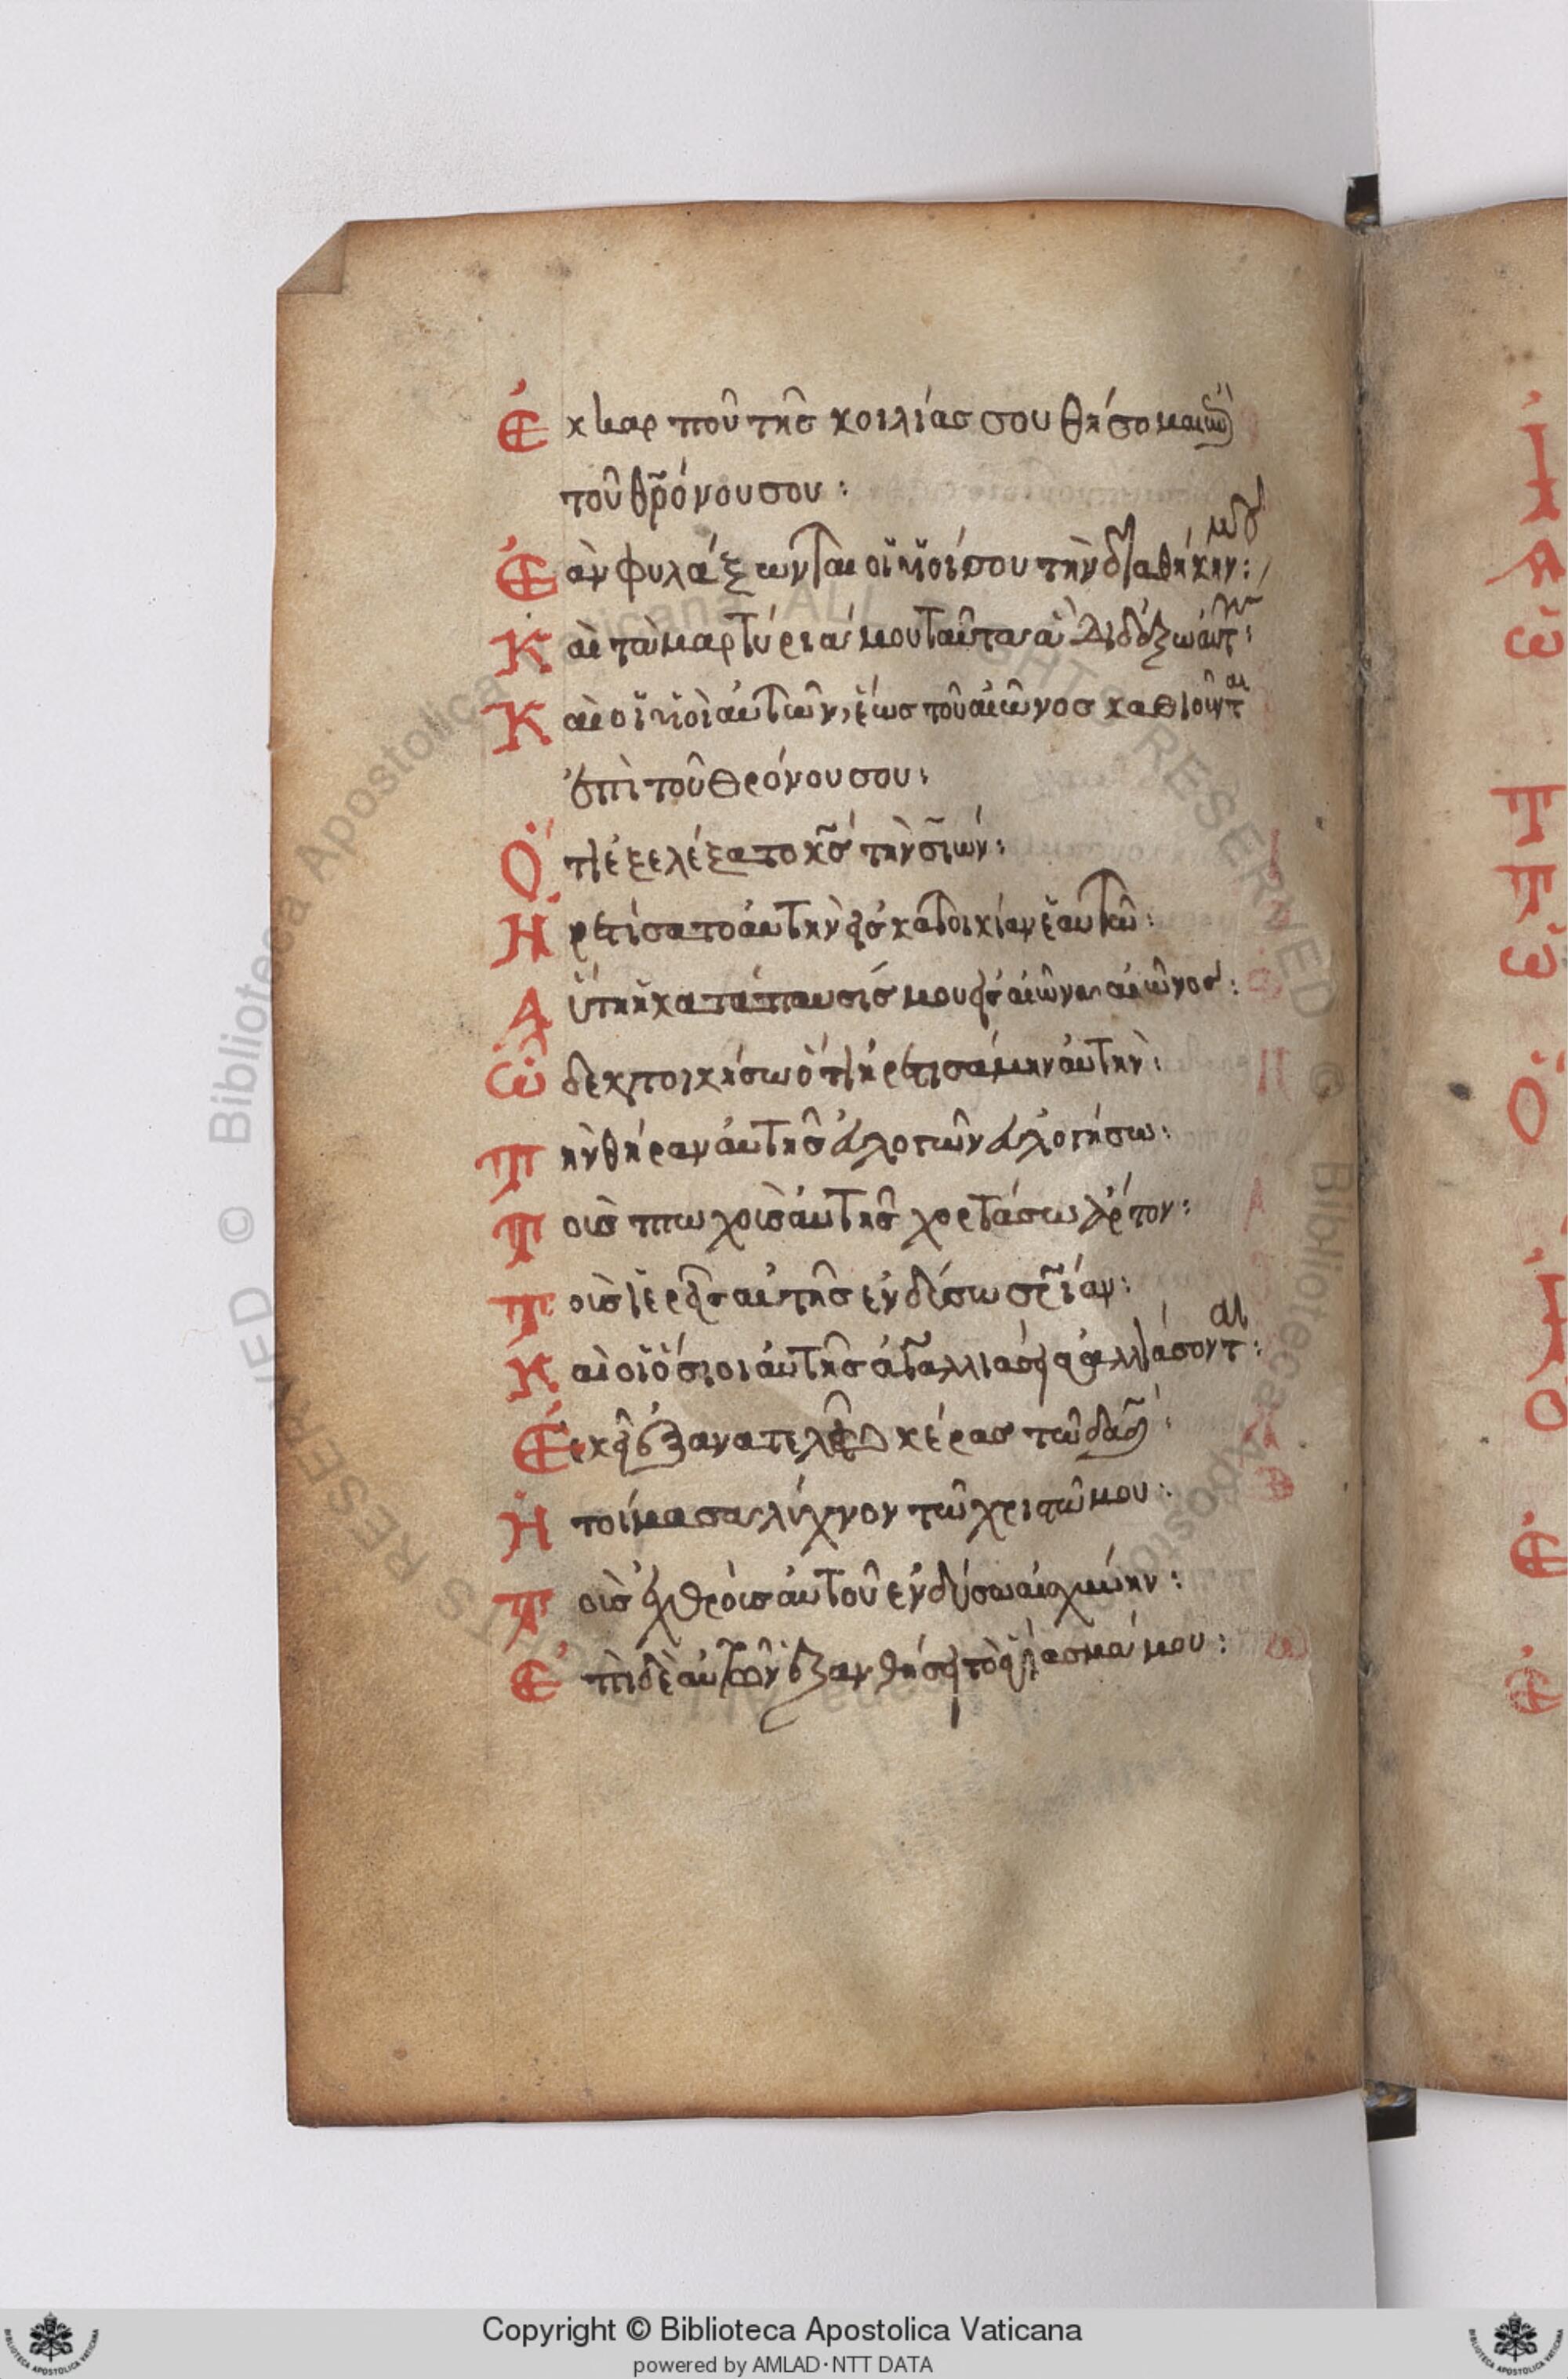 Ἐκ καρποῦ τῆς κοιλίας σου θήσομαι ἐπὶ
τοῦ θρόνου σου :
Ἐὰν φυλάξωνται οἱ υἱοί σου τὴν διαθήκην μου :
Καὶ τὰ μαρτύριά μου ταῦτα ἃ διδάξω αὐτούς :
Καὶ οἱ υἱοὶ αὐτῶν, ἕως τοῦ αἰῶνος καθιοῦνται
ἐπὶ τοῦ θρόνου σου :
Ὅτι ἐξελέξατο κς τὴν σιών :
Ἡρετίσατο αὐτὴν εἰς κατοικίαν ἑαυτῶ :
Αὕτη ἡ κατάπαυσίς μου εἰς αἰῶνα αἰῶνος :
Ὧδε κατοικήσω ὅτι ἡρετισάμην αὐτήν :
Τὴν θήραν αὐτῆς εὐλογῶν εὐλογήσω :
Τοὺς πτωχοὺς αὐτῆς χορτάσω ἄρτον :
Τοὺς ἱερεῖς αὐτῆς ἐνδύσω σρίαν :
Καὶ οἱ ὅσιοι αὐτῆς ἀγαλλιάσει ἀγαλλιάσονται :
Ἐκεῖ ἐξανατελεῖ κέρας τῶ δαδ :
Ἡτοίμασα λύχνον τῶ χριστῶ μου :
Τοὺς ἐχθροὺς αὐτοῦ ἐνδύσω αἰσχύνην :
Ἐπὶ δὲ αὐτὸν ἐξανθήσει τὸ ἁγίασμά μου :
Copyright © Biblioteca Apostolica Vaticana
powered by AMLAD·NTT DATA